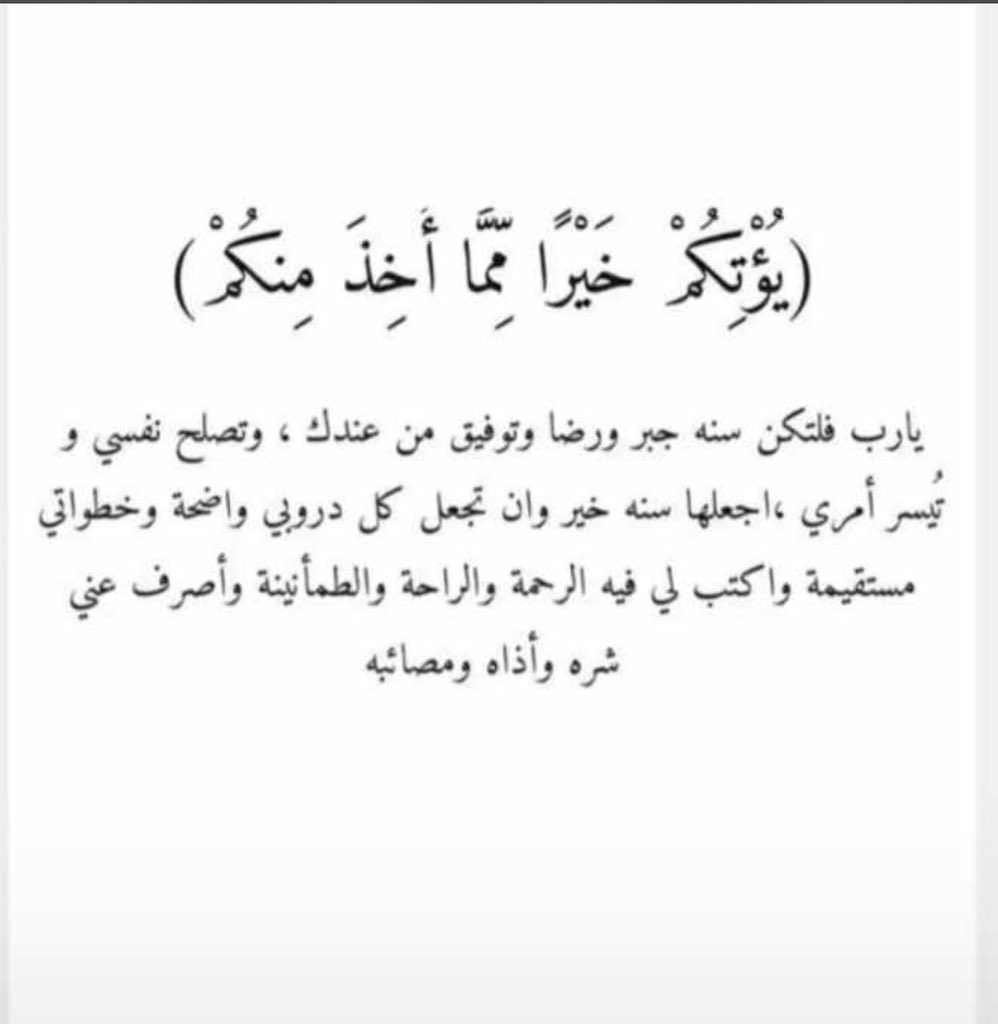 (يُؤْتِكُمْ خَيْرًا مِّمَّا أُخِذَ مِنكُمْ)
يارب فلتكن سنه جبر ورضا وتوفيق من عندك ، وتصلح نفسي و
تُيسر أمري ،اجعلها سنه خير وان تجعل كل دروبي واضحة وخطواتي
مستقيمة واكتب لي فيه الرحمة والراحة والطمأنينة وأصرف عني
شره وأذاه ومصائبه